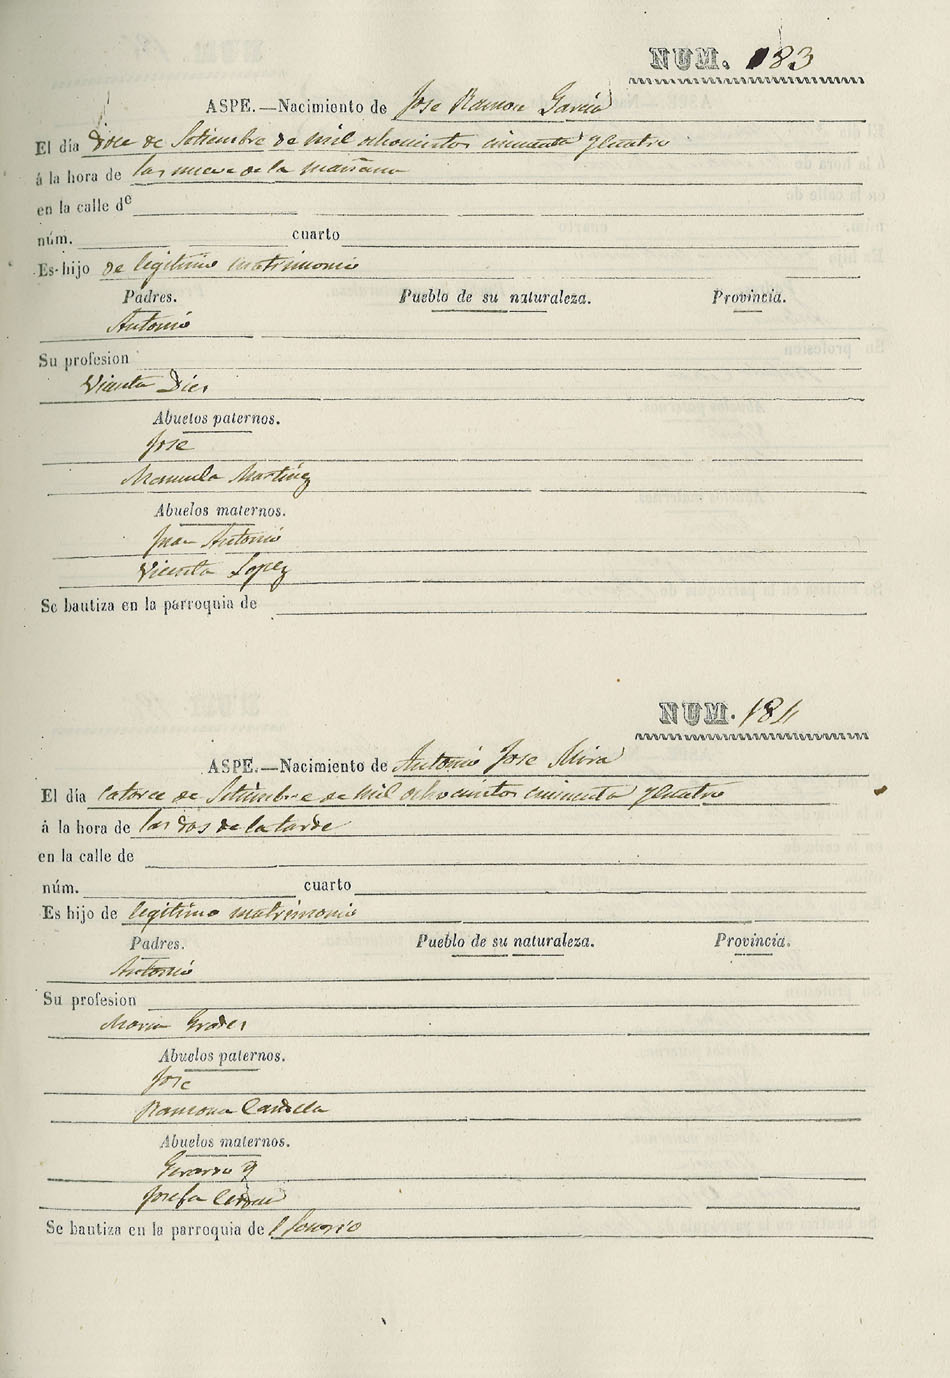 NUM. 183
ASPE.—Nacimiento de Jose Ramon Garcia
El día doce de Setiembre de mil ochocientos cincuenta y Cuatro
á la hora de las nueve de la mañana
en la calle de
núm. cuarto
Es hijo de legitimo matrimonio
Padres. Pueblo de su naturaleza. Provincia.
Antonio
Su profesion
Vicenta Dies
Abuelos paternos.
Jose
Manuela Martinez
Abuelos maternos.
Juan Antonio
Vicenta Lopez
Se bautiza en la parroquia de
NUM. 184
ASPE.—Nacimiento de Antonio Jose Mira
El día catorce de Setiembre de mil ochocientos cincuenta y Cuatro
á la hora de las dos de la tarde
en la calle de
núm. cuarto
Es hijo de legitimo matrimonio
Padres. Pueblo de su naturaleza. Provincia.
Antonio
Su profesion
Maria
Abuelos paternos.
Jose
Ramona
Abuelos maternos.
Josefa
Se bautiza en la parroquia de